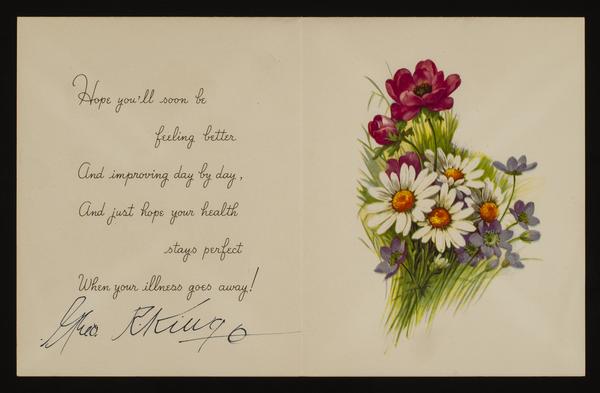 Hope you'll soon be
feeling better
And improving day by day,
And just hope your health
stays perfect
When your illness goes away!
Geo. R. King